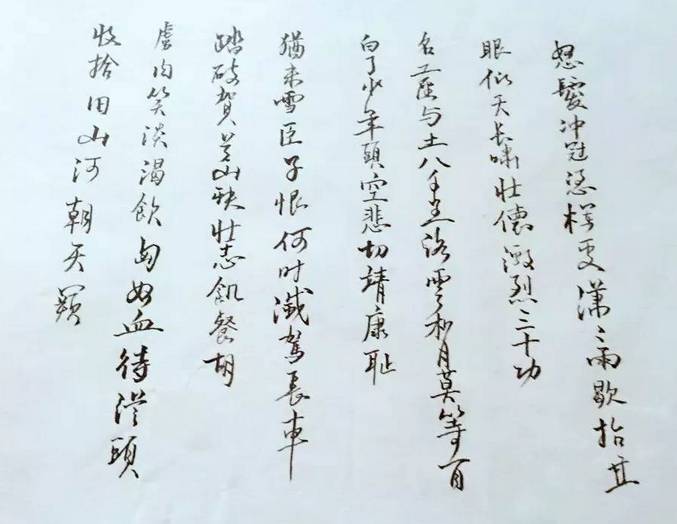 怒髮冲冠凭栏處潇〻雨歇抬望
眼仰天长啸壮懷激烈三十功
名塵与土八千里路雲和月莫等闲
白了少年頭空悲切靖康耻
猶未雪臣子恨何时滅駕長車
踏破賀兰山缺壮志飢餐胡
虜肉笑谈渴飲匈奴血待從頭
收拾旧山河朝天闕